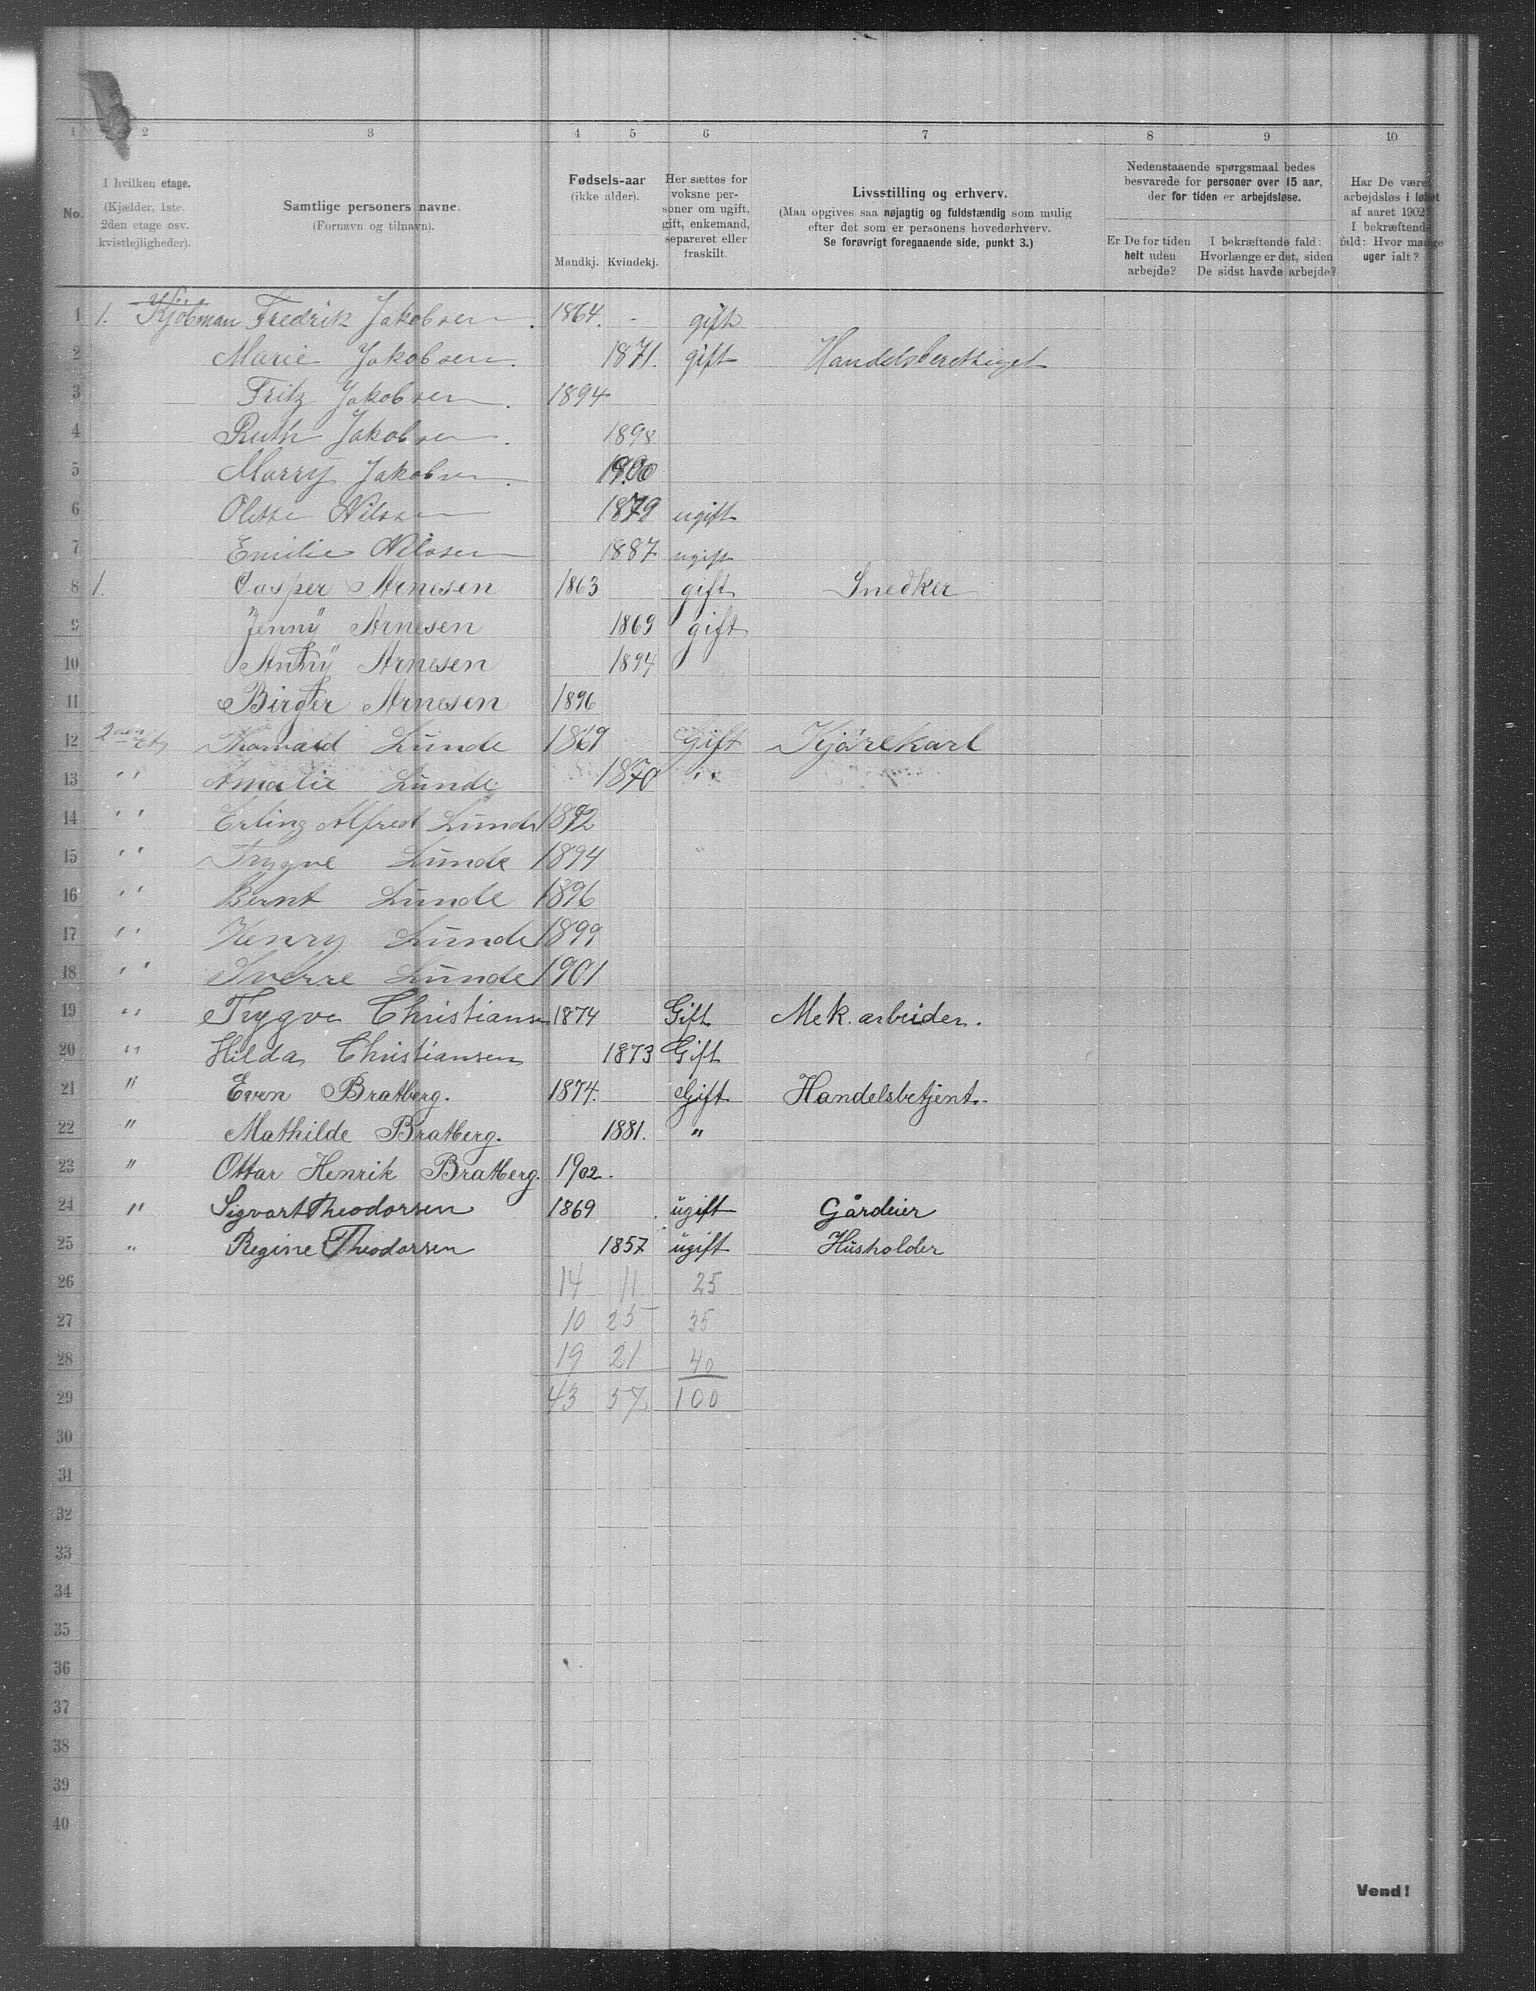 1 2 3 4 5 6 7 8 9 10
No.
I hvilken etage.
(Kjælder, 1ste.
2den etage osv.
kvistlejligheder).
Samtlige personers navne.
(Fornavn og tilnavn).
Fødsels-aar
(ikke alder).
Mandkj. Kvindekj.
Her sættes for
voksne per-
soner om ugift,
gift, enkemand,
separeret eller
fraskilt.
Livsstilling og erhverv.
(Maa opgives saa nøjagtig og fuldstændig som mulig
efter det som er personens hovederhverv.
Se forøvrigt foregaaende side, punkt 3.)
Nedenstaaende spørgsmaal bedes
besvarede for personer over 15 aar,
der for tiden er arbejdsløse.
Er De for tiden
helt uden
arbejde?
I bekræftende fald:
Hvorlænge er det, siden
De sidst havde arbejde?
Har De været
arbejdsløs i løbet
af aaret 1902?
I bekræftende
fald: Hvor mange
uger ialt?
1 1. Kjöbman Fredrik Jakobsen. 1864. - gift
2 Marie Jakobsen. 1871. gift Handelsberettiget
3 Fritz Jakobsen. 1894
4 Ruth Jakobsen. 1898
5 Marry Jakobsen. 1900
6 Olette Nilssen 1879 ugift
7 Emilie Nilssen 1887 ugift
8 1. Casper Arnesen 1863 gift Snedker
9 Jenny Arnesen 1869 gift
10 Anny Arnesen 1894
11 Birger Arnesen 1896
12 2den etg Thorvald Lunde 1869 Gift Kjørekarl
13 " Amalie Lunde 1870 "
14 " Erling Alfred Lunde 1892
15 " Trygve Lunde 1894
16 " Bernt Lunde 1896
17 " Henry Lunde 1899
18 " Sverre Lunde 1901
19 " Trygve Christiansen 1874 Gift Mek. arbeider.
20 " Hilda Christiansen 1873 Gift
21 " Even Bratberg. 1874. Gift Handelsbetjent.
22 " Mathilde Bratberg. 1881. "
23 " Ottar Henrik Bratberg. 1902.
24 " Sigvart Theodorsen 1869 ugift Gårdeier
25 " Regine Theodorsen 1857 ugift Husholder
26 14 11 25
27 10 25 35
28 19 21 40
29 43 57 100
30
31
32
33
34
35
36
37
38
39
40
Vend!